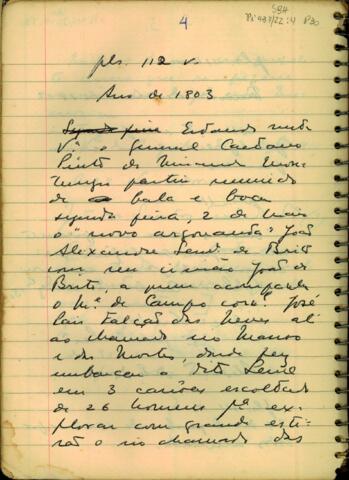 4
pls. 112 v.
Ano de 1803
Estando nesta
Vª o General Caetano
Pinto de Miranda Mon-
tenegro partiu munido
de bala e boca
segunda feira, 2 de maio
o "novo argonauta" João
Alexandre Leme de Brito
com seu irmão João de
Brito, a quem acompanha
o Mº de Campo José
Luis Falcão das Neves até
ao chamado rio Manso
e dos Mortos, donde
embarcou o dito Leme
em 3 canôas escoltado
de 26 homens pª ex-
plorar com grande esti-
rão o rio chamado das